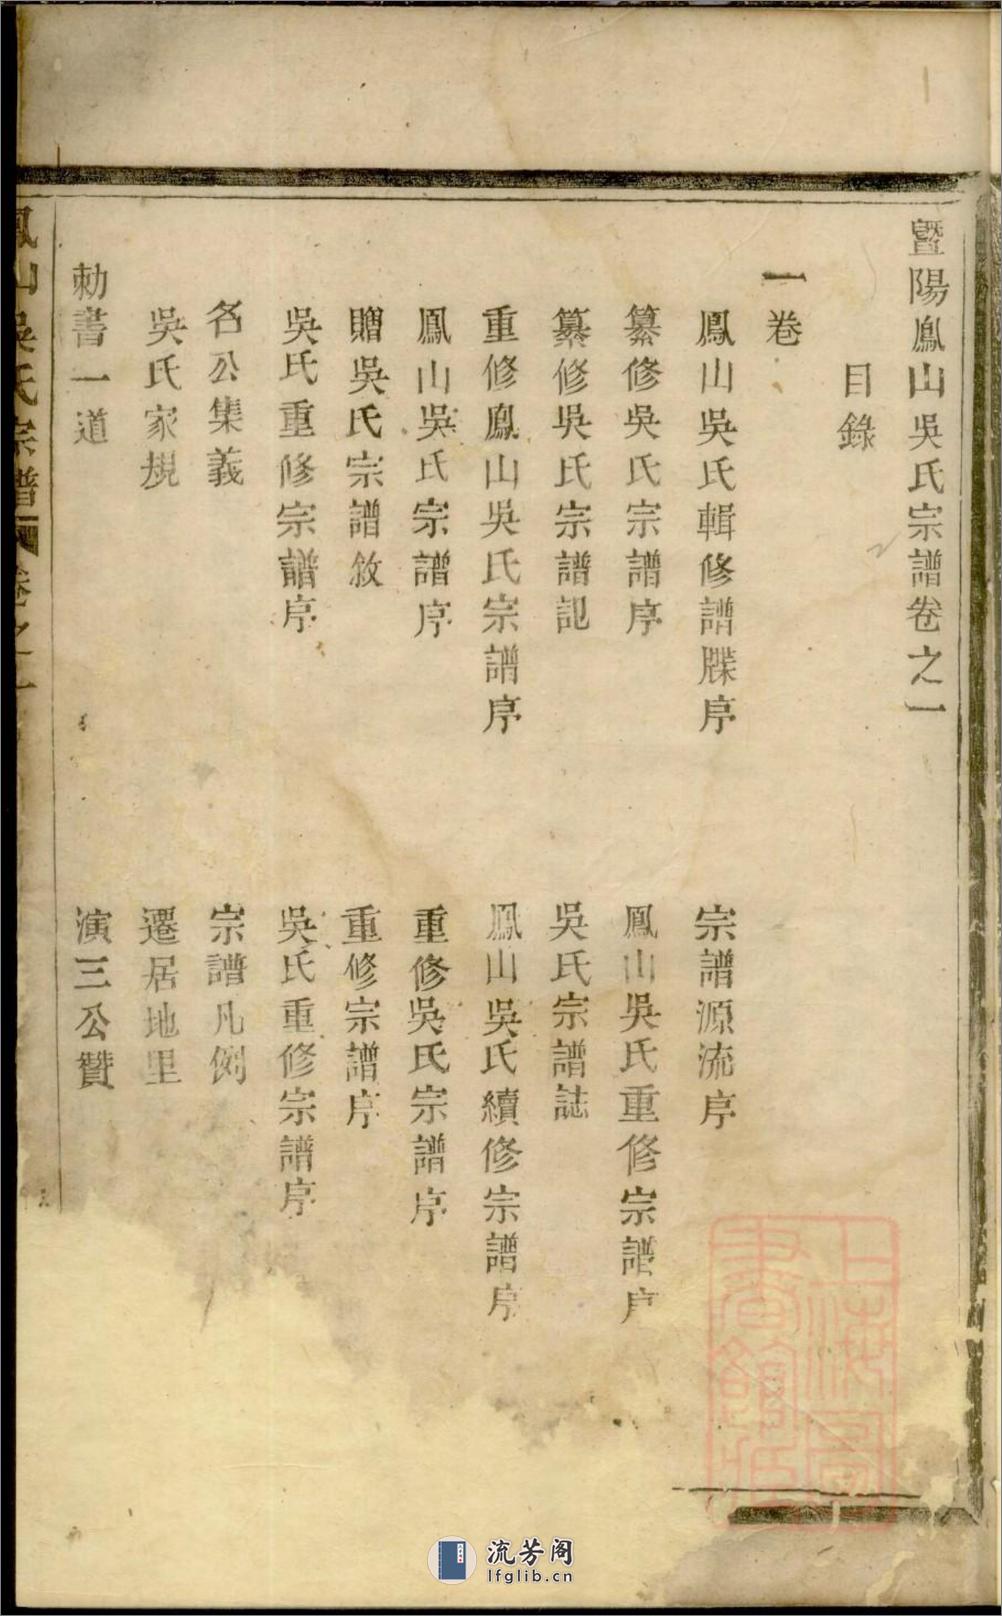 暨陽鳳山吳氏宗譜卷之一
目錄
一卷
鳳山吳氏輯修譜牒序
宗譜源流序
纂修吳氏宗譜序
鳳山吳氏重修宗譜序
纂修吳氏宗譜記
吳氏宗譜誌
重修鳳山吳氏宗譜序
鳳山吳氏續修宗譜序
鳳山吳氏宗譜序
重修吳氏宗譜序
贈吳氏宗譜敘
重修宗譜序
吳氏重修宗譜序
吳氏重修宗譜序
名公集義
宗譜凡例
吳氏家規
遷居地里
勅書一道
演三公贊
鳳山吳氏宗譜 卷之一
上海圖書館藏
流芳阁
lfglib.cn